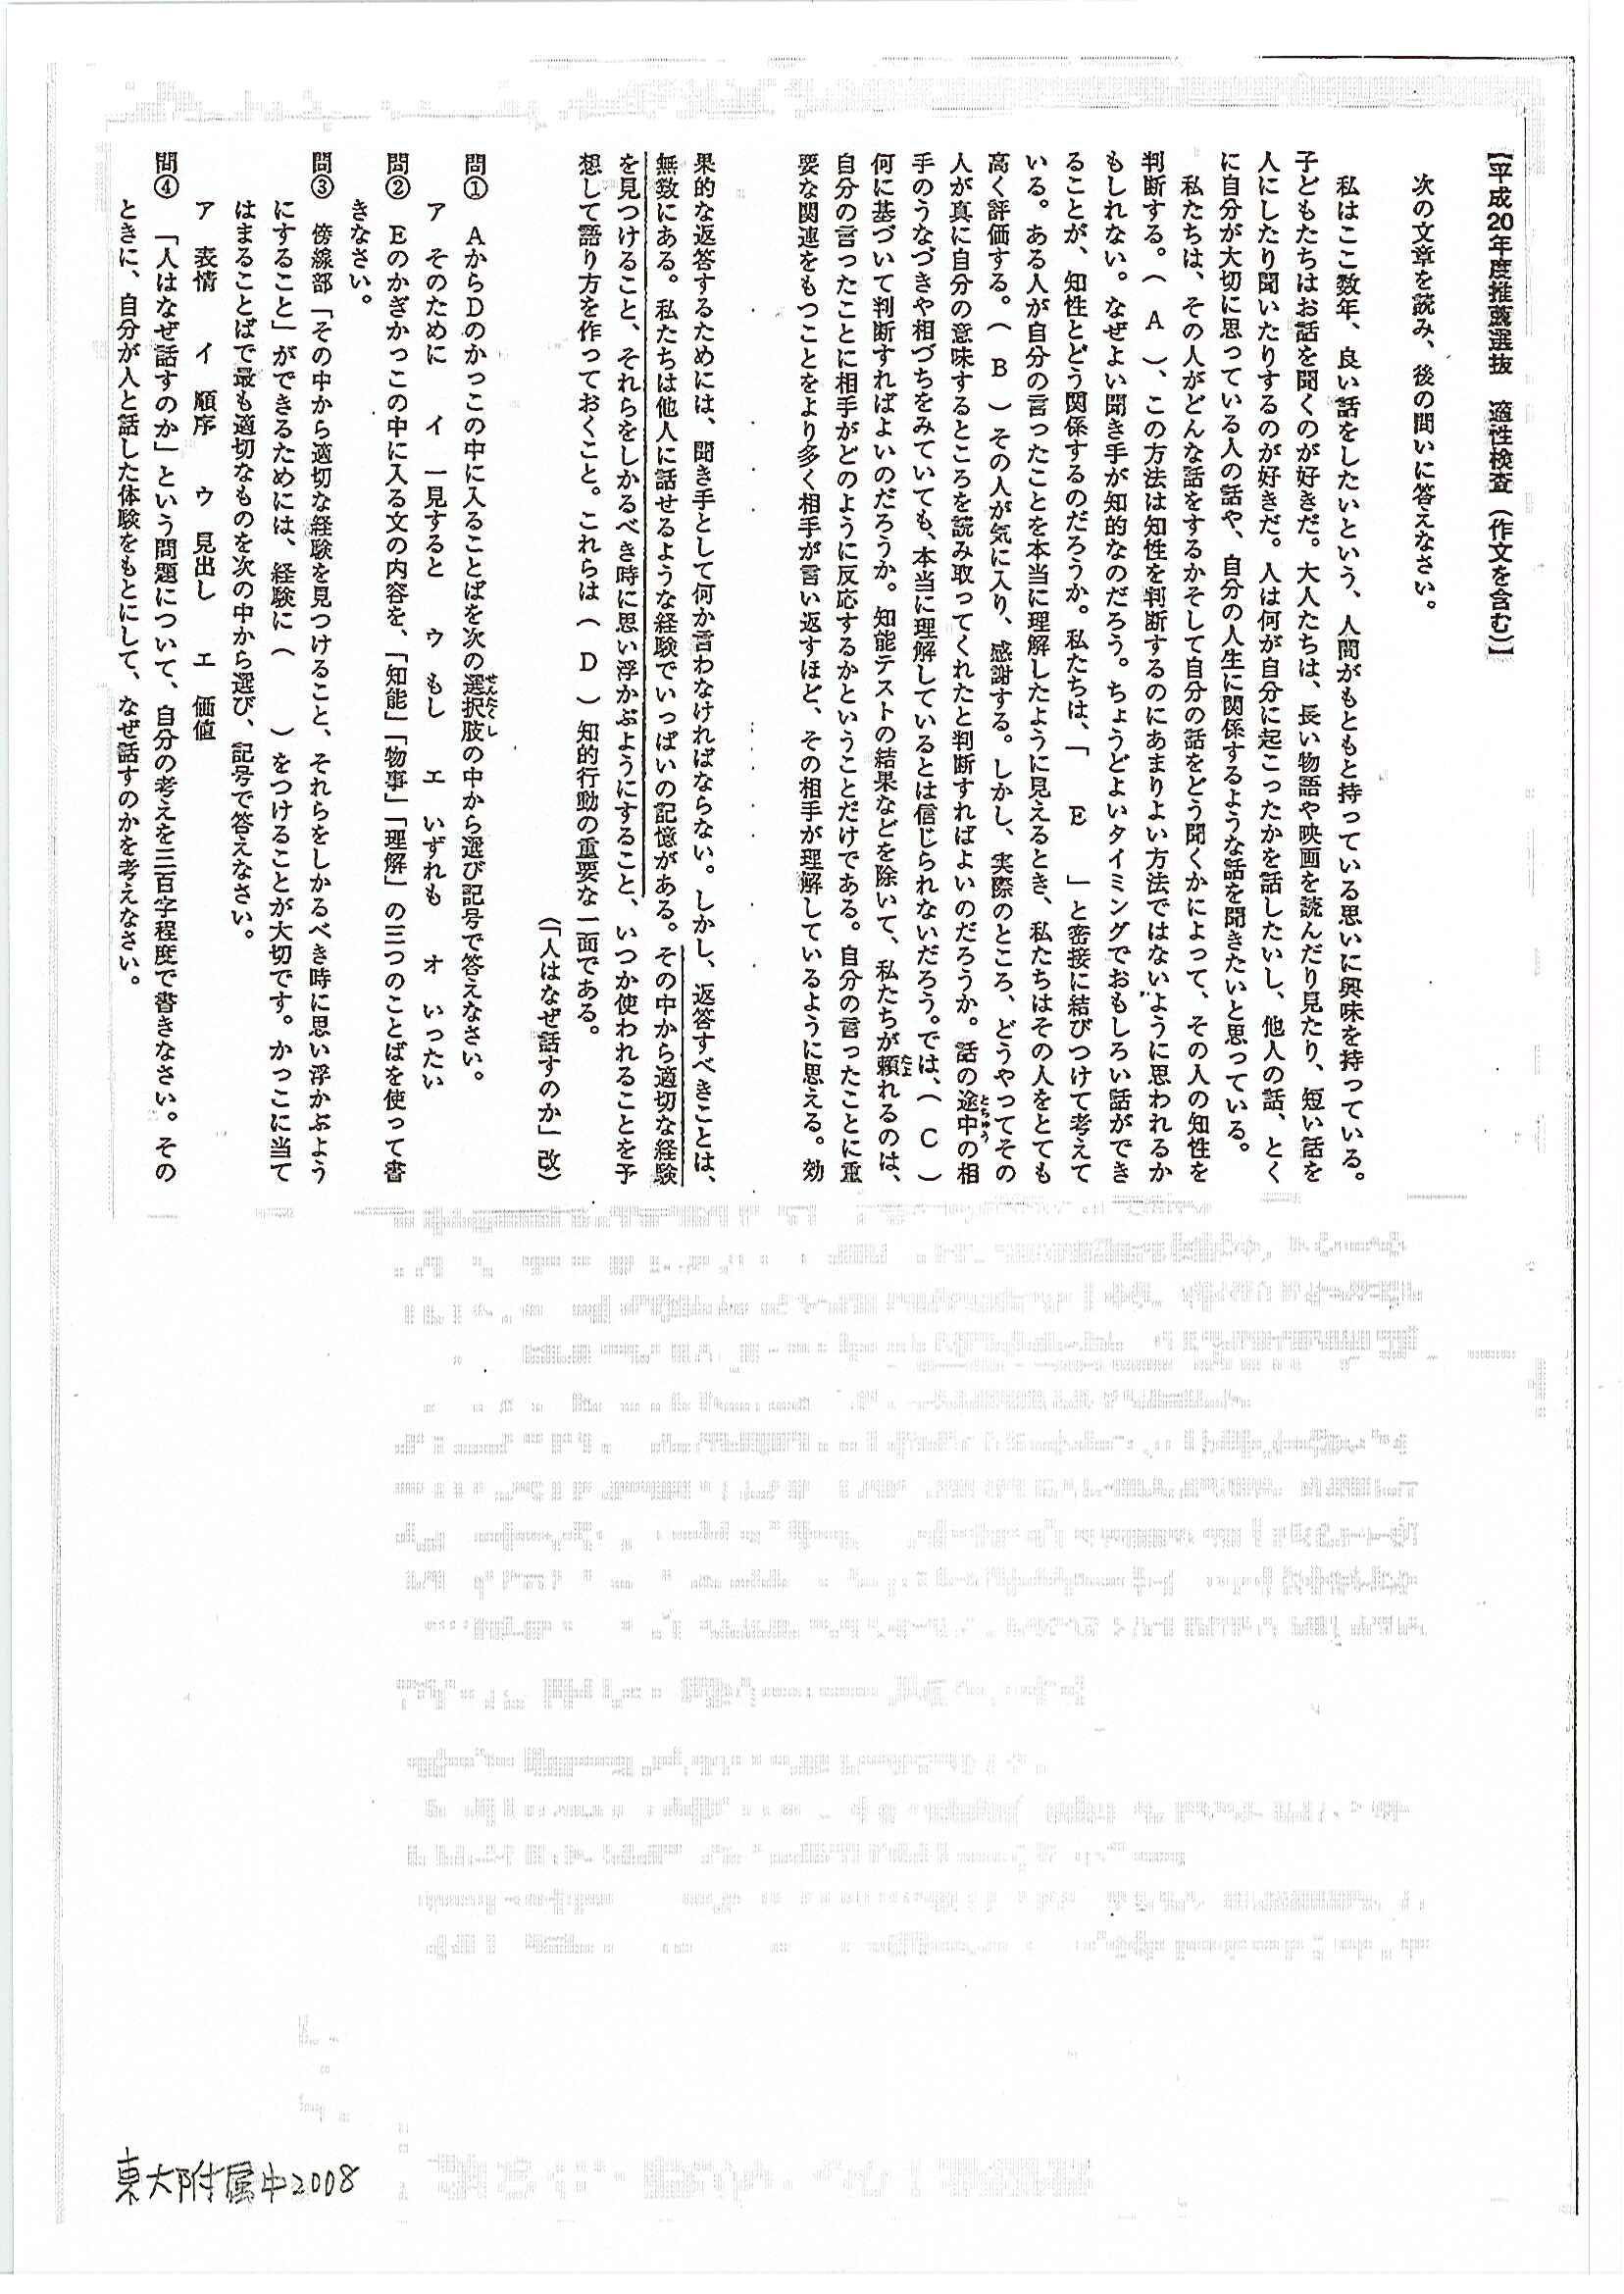 【平成20年度推薦選抜　適性検査（作文を含む）】
次の文章を読み、後の問いに答えなさい。
私はここ数年、良い話をしたいという、人間がもともと持っている思いに興味を持っている。
子どもたちはお話を聞くのが好きだ。大人たちは、長い物語や映画を読んだり見たり、短い話を
人にしたり聞いたりするのが好きだ。人は何が自分に起こったかを話したいし、他人の話、とく
に自分が大切に思っている人の話や、自分の人生に関係するような話を聞きたいと思っている。
私たちは、その人がどんな話をするかそして自分の話をどう聞くかによって、その人の知性を
判断する。（　A　）、この方法は知性を判断するのにあまりよい方法ではないように思われるか
もしれない。なぜよい聞き手が知的なのだろう。ちょうどよいタイミングでおもしろい話ができ
ることが、知性とどう関係するのだろうか。私たちは、「　　E　　」と密接に結びつけて考えて
いる。ある人が自分の言ったことを本当に理解したように見えるとき、私たちはその人をとても
高く評価する。（　B　）その人が気に入り、感謝する。しかし、実際のところ、どうやってその
人が真に自分の意味するところを読み取ってくれたと判断すればよいのだろうか。話の途中の相
とちゅう
手のうなづきや相づちをみていても、本当に理解しているとは信じられないだろう。では、（　C　）
何に基づいて判断すればよいのだろうか。知能テストの結果などを除いて、私たちが頼れるのは、
たよ
自分の言ったことに相手がどのように反応するかということだけである。自分の言ったことに重
要な関連をもつことをより多く相手が言い返すほど、その相手が理解しているように思える。効
果的な返答するためには、聞き手として何か言わなければならない。しかし、返答すべきことは、
無数にある。私たちは他人に話せるような経験でいっぱいの記憶がある。その中から適切な経験
を見つけること、それらをしかるべき時に思い浮かぶようにすること、いつか使われることを予
想して語り方を作っておくこと。これらは（　D　）知的行動の重要な一面である。
（「人はなぜ話すのか」改）
問①　AからDのかっこの中に入ることばを次の選択肢の中から選び記号で答えなさい。
せんたくし
ア　そのために　　イ　一見すると　　ウ　もし　　エ　いずれも　　オ　いったい
問②　Eのかぎかっこの中に入る文の内容を、「知能」「物事」「理解」の三つのことばを使って書
きなさい。
問③　傍線部「その中から適切な経験を見つけること、それらをしかるべき時に思い浮かぶよう
にすること」ができるためには、経験に（　　　　）をつけることが大切です。かっこに当て
はまることばで最も適切なものを次の中から選び、記号で答えなさい。
ア　表情　　イ　順序　　ウ　見出し　　エ　価値
問④　「人はなぜ話すのか」という問題について、自分の考えを三百字程度で書きなさい。その
ときに、自分が人と話した体験をもとにして、なぜ話すのかを考えなさい。
東大附属中2008